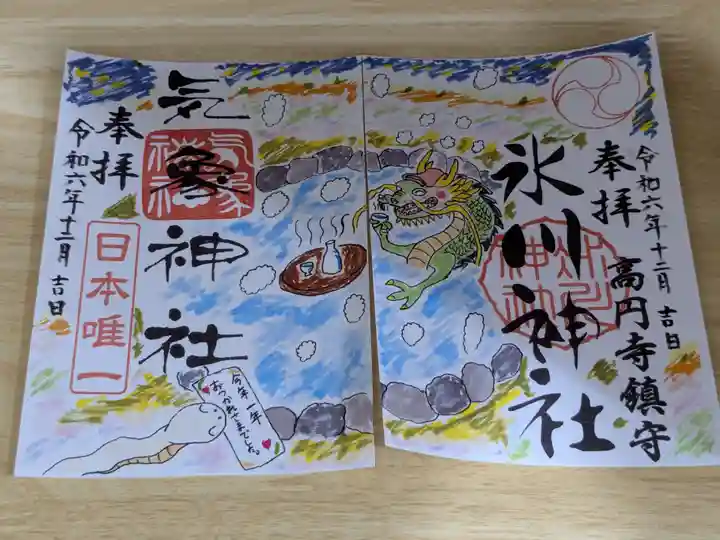 令和六年十二月 吉日
奉拝 高円寺鎮守
氷川神社
気象神社
奉拝
日本唯一
令和六年十二月 吉日
今年一年
おつかれさまでした。